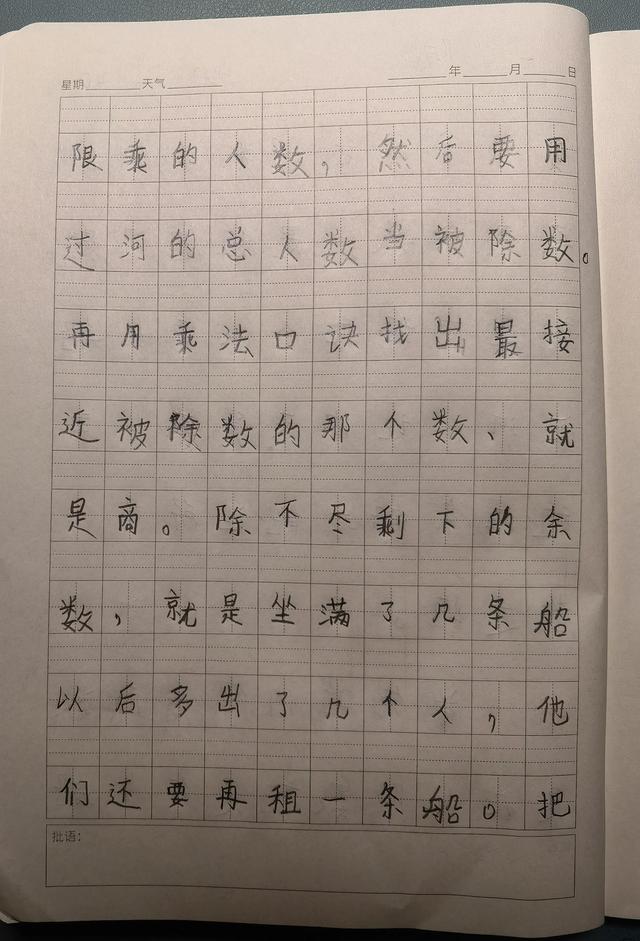 星期 天气 年 月 日
限乘的人数，然后要用
过河的总人数当被除数。
再用乘法口诀找出最接
近被除数的那个数、就
是商。除不尽剩下的余
数，就是坐满了几条船
以后多出了几个人，他
们还要再租一条船。把
批语：